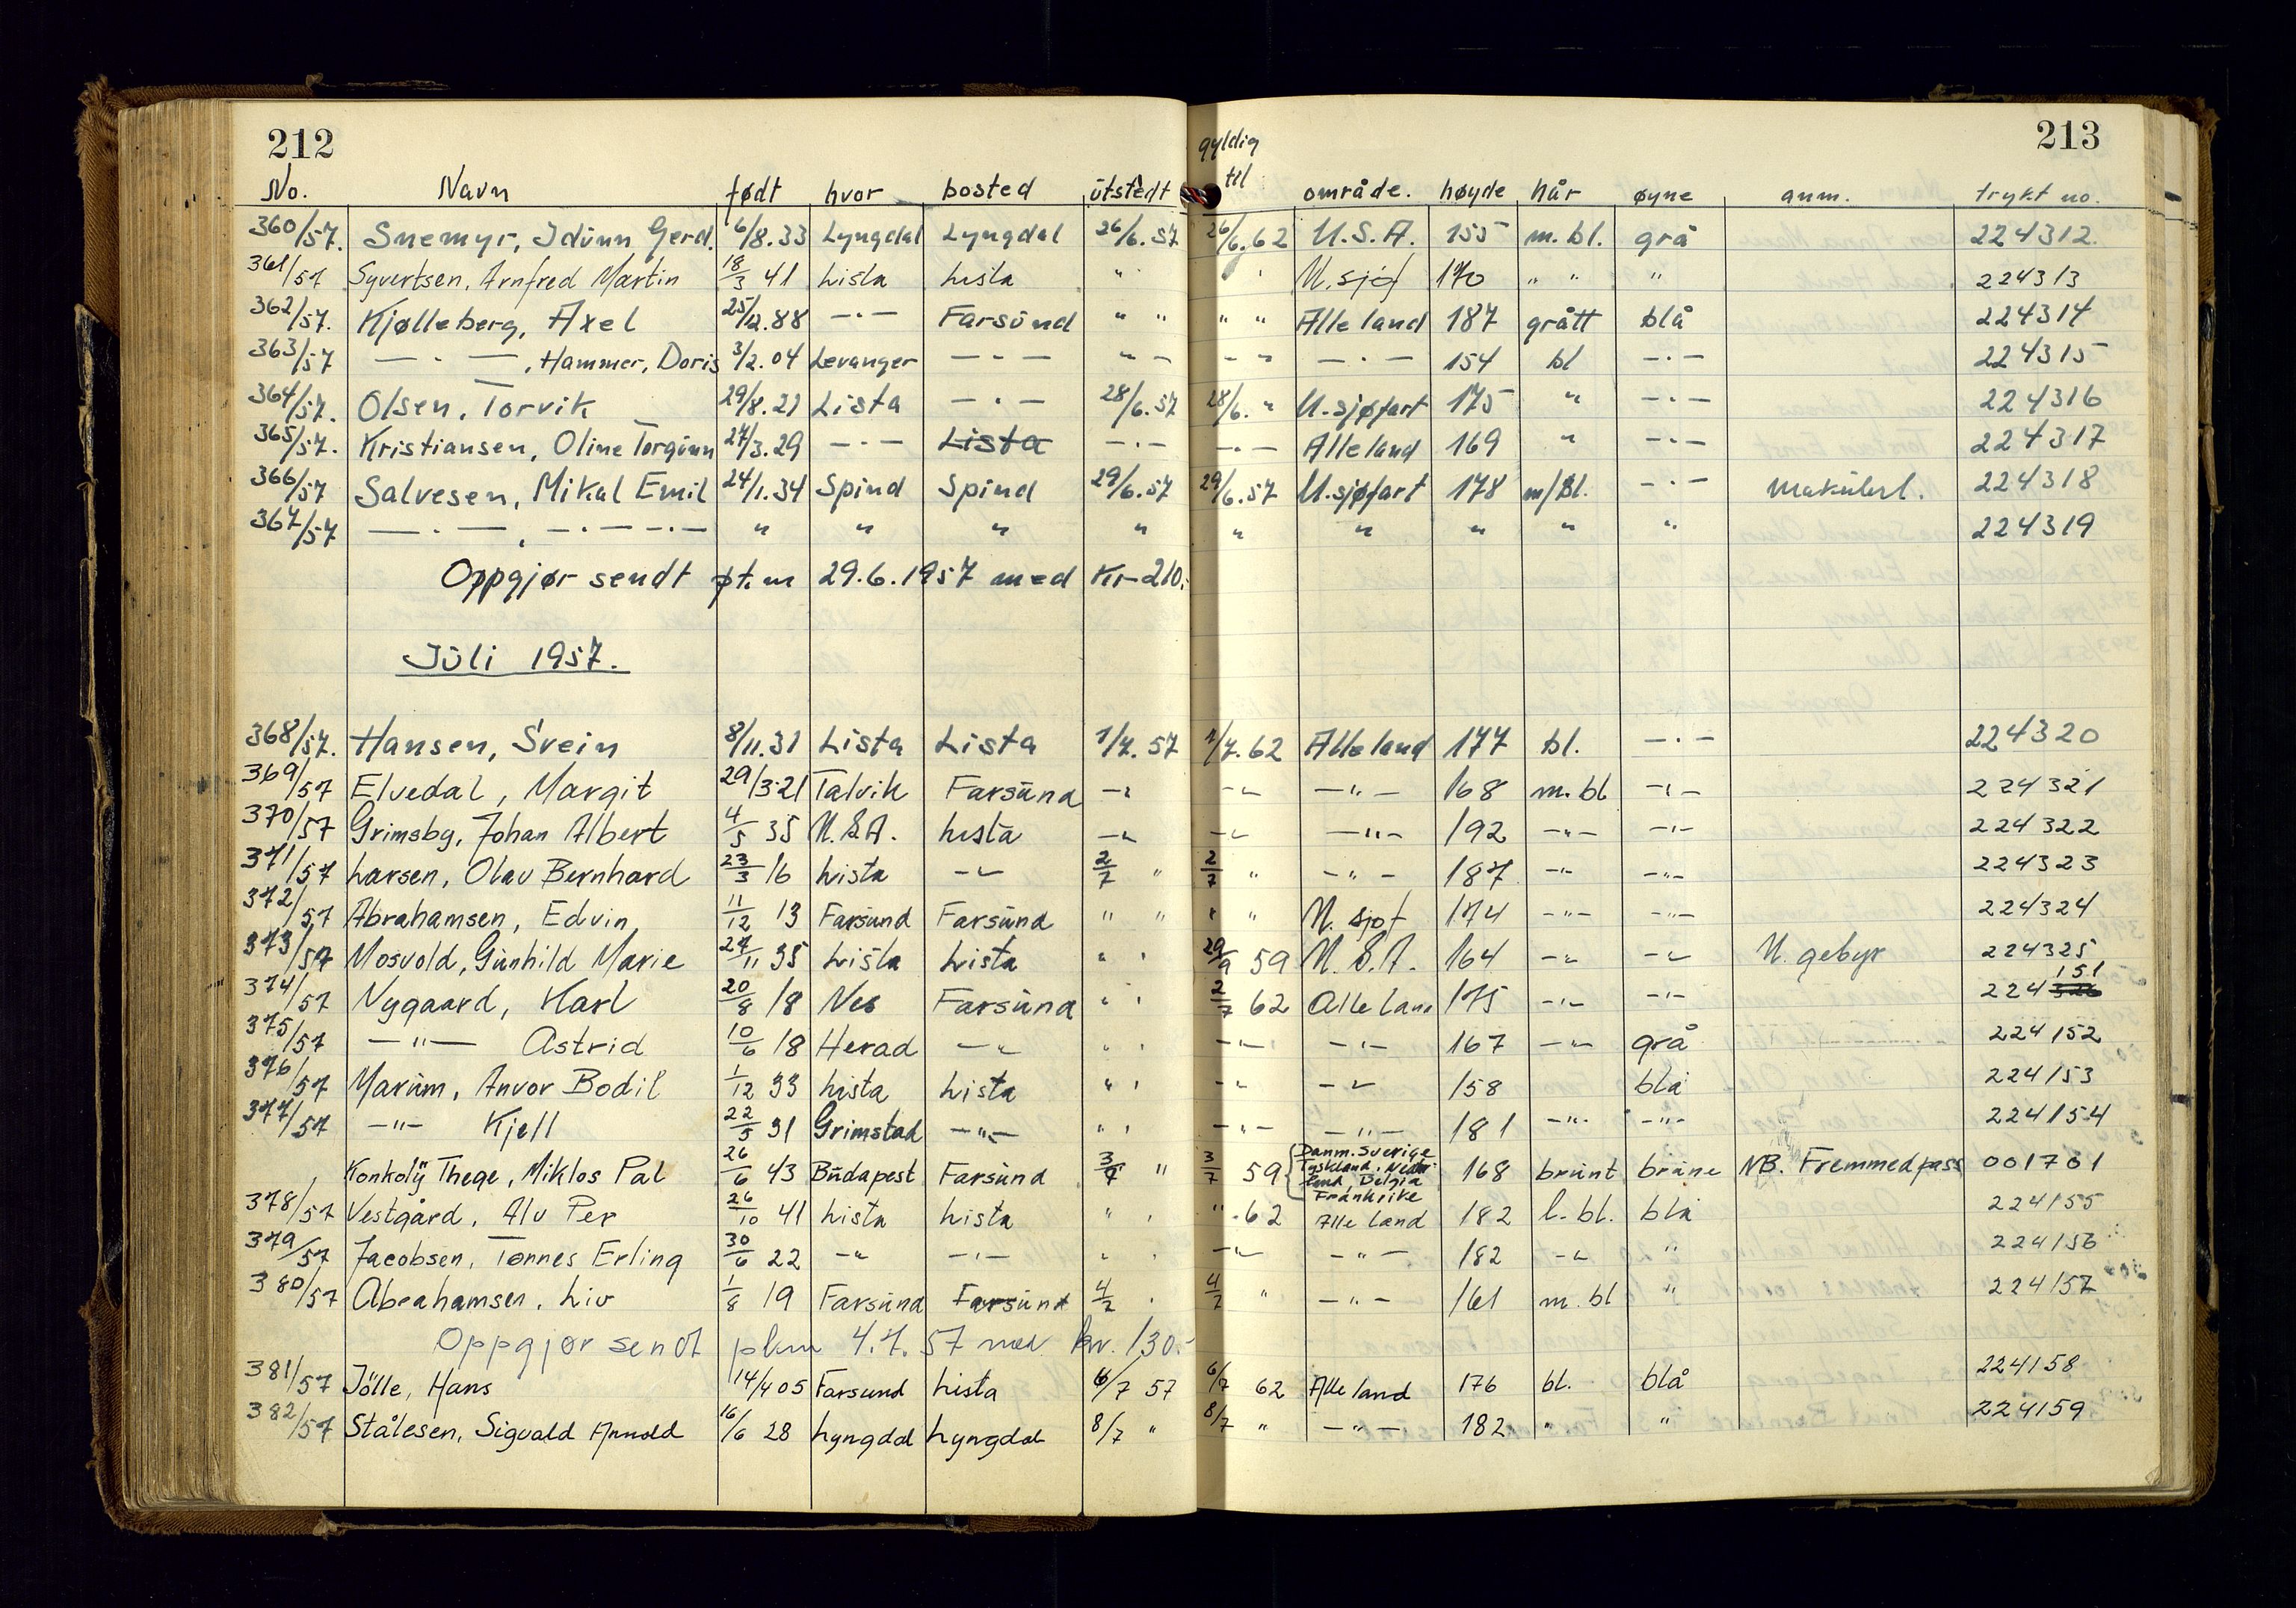 212
213
No. Navn født hvor bosted utstedt gyldig til område. høyde hår øyne anm. trykt no.
360/57. Snemyr, Idunn Gerd. 6/8.33 Lyngdal Lyngdal 26/6.57 26/6.62 U.S.A. 155 m.bl. grå 224312.
361/57 Syvertsen, Arnfred Martin 18/3 41 Lista Lista " " U.sjøf 170 " " " 224313
362/57. Kjølleberg, Axel 25/12.88 —·— Farsund " " " " Alle land 187 grått blå 224314
363/57 —·—, Hammer, Doris 3/2.04 Levanger —·— " — - " —·— 154 bl —·— 224315
364/57. Olsen, Torvik 29/8.21 Lista —·— 28/6.57 28/6. " U.sjøfart 175 " —·— 224316
365/57. Kristiansen, Oline Torgunn 27/3.29 —·— Lista —·— —·— Alle land 169 " —·— 224317
366/57 Salvesen, Mikal Emil 24/1.34 Spind Spind 29/6.57 29/6.57 U.sjøfart 178 m/Bl. —·— Makulert. 224318
367/57 —·—, —·—·— " " " " " " " " " 224319
Oppgjør sendt ptm 29.6.1957 med Kr 210.-
Juli 1957.
368/57. Hansen, Svein 8/11.31 Lista Lista 1/7.57 1/7.62 Alle land 177 bl. —·— 224320
369/57 Elvedal, Margit 29/3 21 Talvik Farsund -"- -"- -"- 168 m.bl -"- 224321
370/57 Grimsby, Johan Albert 4/5 35 U.S.A. Lista -"- -"- -"- 192 -"- -"- 224322
371/57 Larsen, Olav Bernhard 23/3 16 Lista -"- 2/7 " 2/7 " -"- 187 -"- -"- 224323
372/57 Abrahamsen, Edvin 11/12 13 Farsund Farsund " " " " U.sjøf 174 -"- -"- 224324
373/57 Mosvold, Gunhild Marie 27/11 35 Lista Lista " " 29/9 59 U.S.A. 164 -"- -"- U. gebyr 224325
374/57 Nygaard, Karl 20/8 18 Nes Farsund " " 2/7 62 Alle land 175 -"- -"- 224 326 151
375/57 -"- Astrid 10/6 18 Herad -"- " " -"- -"- 167 -"- grå 224152
376/57 Marum, Anvor Bodil 1/12 33 Lista Lista " " -"- -"- 158 blå 224153
377/57 -"- Kjell 22/5 31 Grimstad -"- " " -"- -"- 181 -"- -"- 224154
Konkolÿ Thege, Miklos Pal 26/6 43 Budapest Farsund 3/7 " 3/7 59 Danm. Sverige Tyskland. Nederland Belgia Frankrike 168 brunt brune NB. Fremmedpass 001761
378/57 Vestgård, Alv Per 26/10 41 Lista Lista " " " 62 Alle land 182 l.bl. blå 224155
379/57 Jacobsen, Tønnes Erling 30/6 22 -"- -"- " " -"- -"- 182 -"- " 224156
380/57 Abrahamsen, Liv 1/8 19 Farsund Farsund 4/7 " 4/7 " -"- 161 m.bl " 224157
Oppgjør sendt pkm 4.7.57 med kr. 130.-
381/57 Jölle, Hans 14/4 05 Farsund Lista 6/7 57 6/7 62 Alle land 176 bl. blå 224158
382/57 Stålesen, Sigvald Arnold 16/6 28 Lyngdal Lyngdal 8/7 " 8/7 " -"- 182 " " 224159